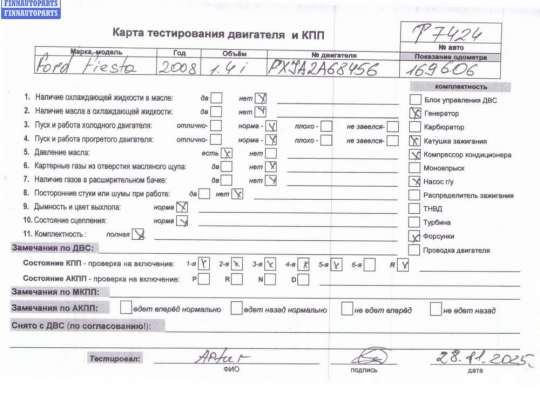 FINNAUTOPARTS
FINNAUTOPARTS
Карта тестирования двигателя и КПП
P7424
№ авто
Марка, модель Год Объём № двигателя Показание одометра
Ford Fiesta 2008 1.4 i PXJA2A68456 169606
комплектность
1. Наличие охлаждающей жидкости в масле: да нет
2. Наличие масла в охлаждающей жидкости: да нет
3. Пуск и работа холодного двигателя: отлично- норма - плохо - не завелся-
4. Пуск и работа прогретого двигателя: отлично- норма - плохо - не завелся-
5. Давление масла: есть нет
6. Картерные газы из отверстия масляного щупа: да нет
7. Наличие газов в расширительном бачке: да нет
8. Посторонние стуки или шумы при работе: да нет
9. Дымность и цвет выхлопа: норма
10. Состояние сцепления: норма
11. Комплектность : полная
Блок управления ДВС
Генератор
Карбюратор
Катушка зажигания
Компрессор кондиционера
Моновпрыск
Насос г/у
Распределитель зажигания
ТНВД
Турбина
Форсунки
Проводка двигателя
Замечания по ДВС:
Состояние КПП - проверка на включение: 1-я 2-я 3-я 4-я 5-я 6-я R
Состояние АКПП - проверка на включение: P R N D
Замечания по МКПП:
Замечания по АКПП: едет вперёд нормально едет назад нормально не едет вперёд не едет назад
Снято с ДВС (по согласованию!):
Тестировал: Артur 28.11.2025.
ФИО подпись дата